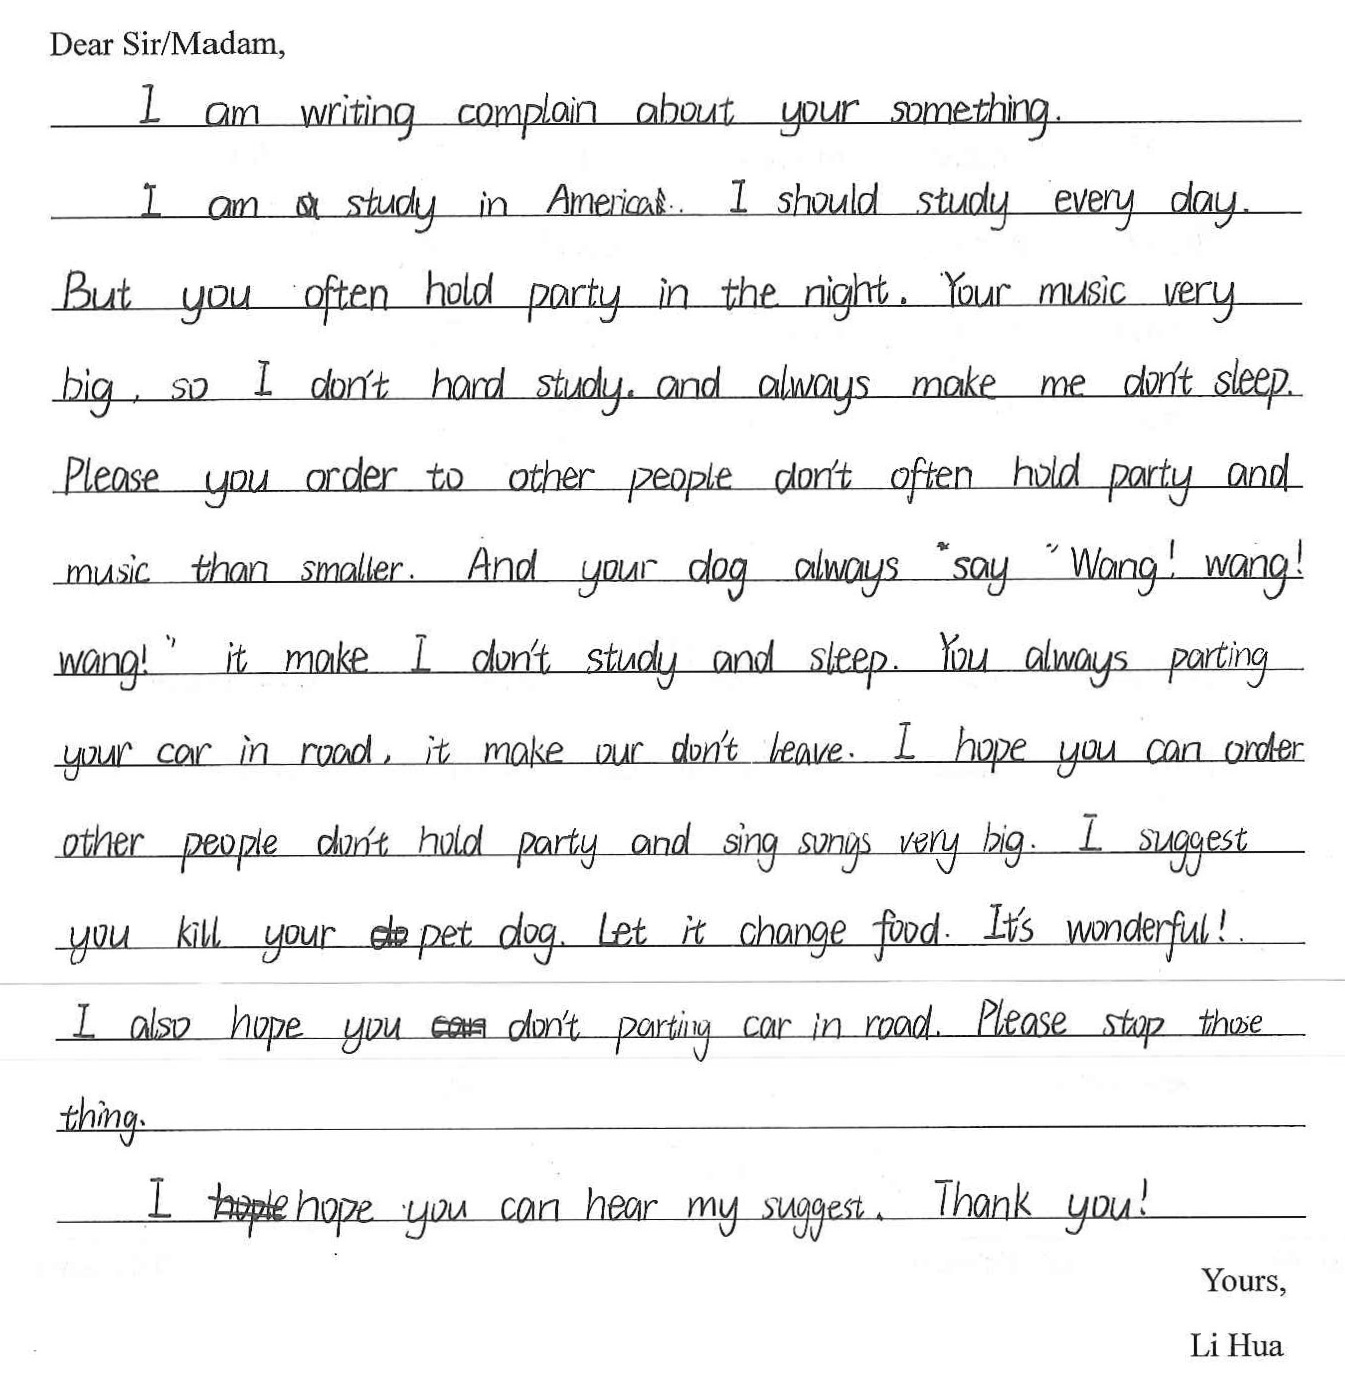 Dear Sir/Madam,
I am writing complain about your something.
I am study in America. I should study every day.
But you often hold party in the night. Your music very
big, so I don't hard study. and always make me don't sleep.
Please you order to other people don't often hold party and
music than smaller. And your dog always say "Wang! wang!
wang!" it make I don't study and sleep. You always parting
your car in road, it make our don't leave. I hope you can order
other people don't hold party and sing songs very big. I suggest
you kill your pet dog. Let it change food. It's wonderful!.
I also hope you don't parting car in road. Please stop those
thing.
I hope you can hear my suggest. Thank you!
Yours,
Li Hua